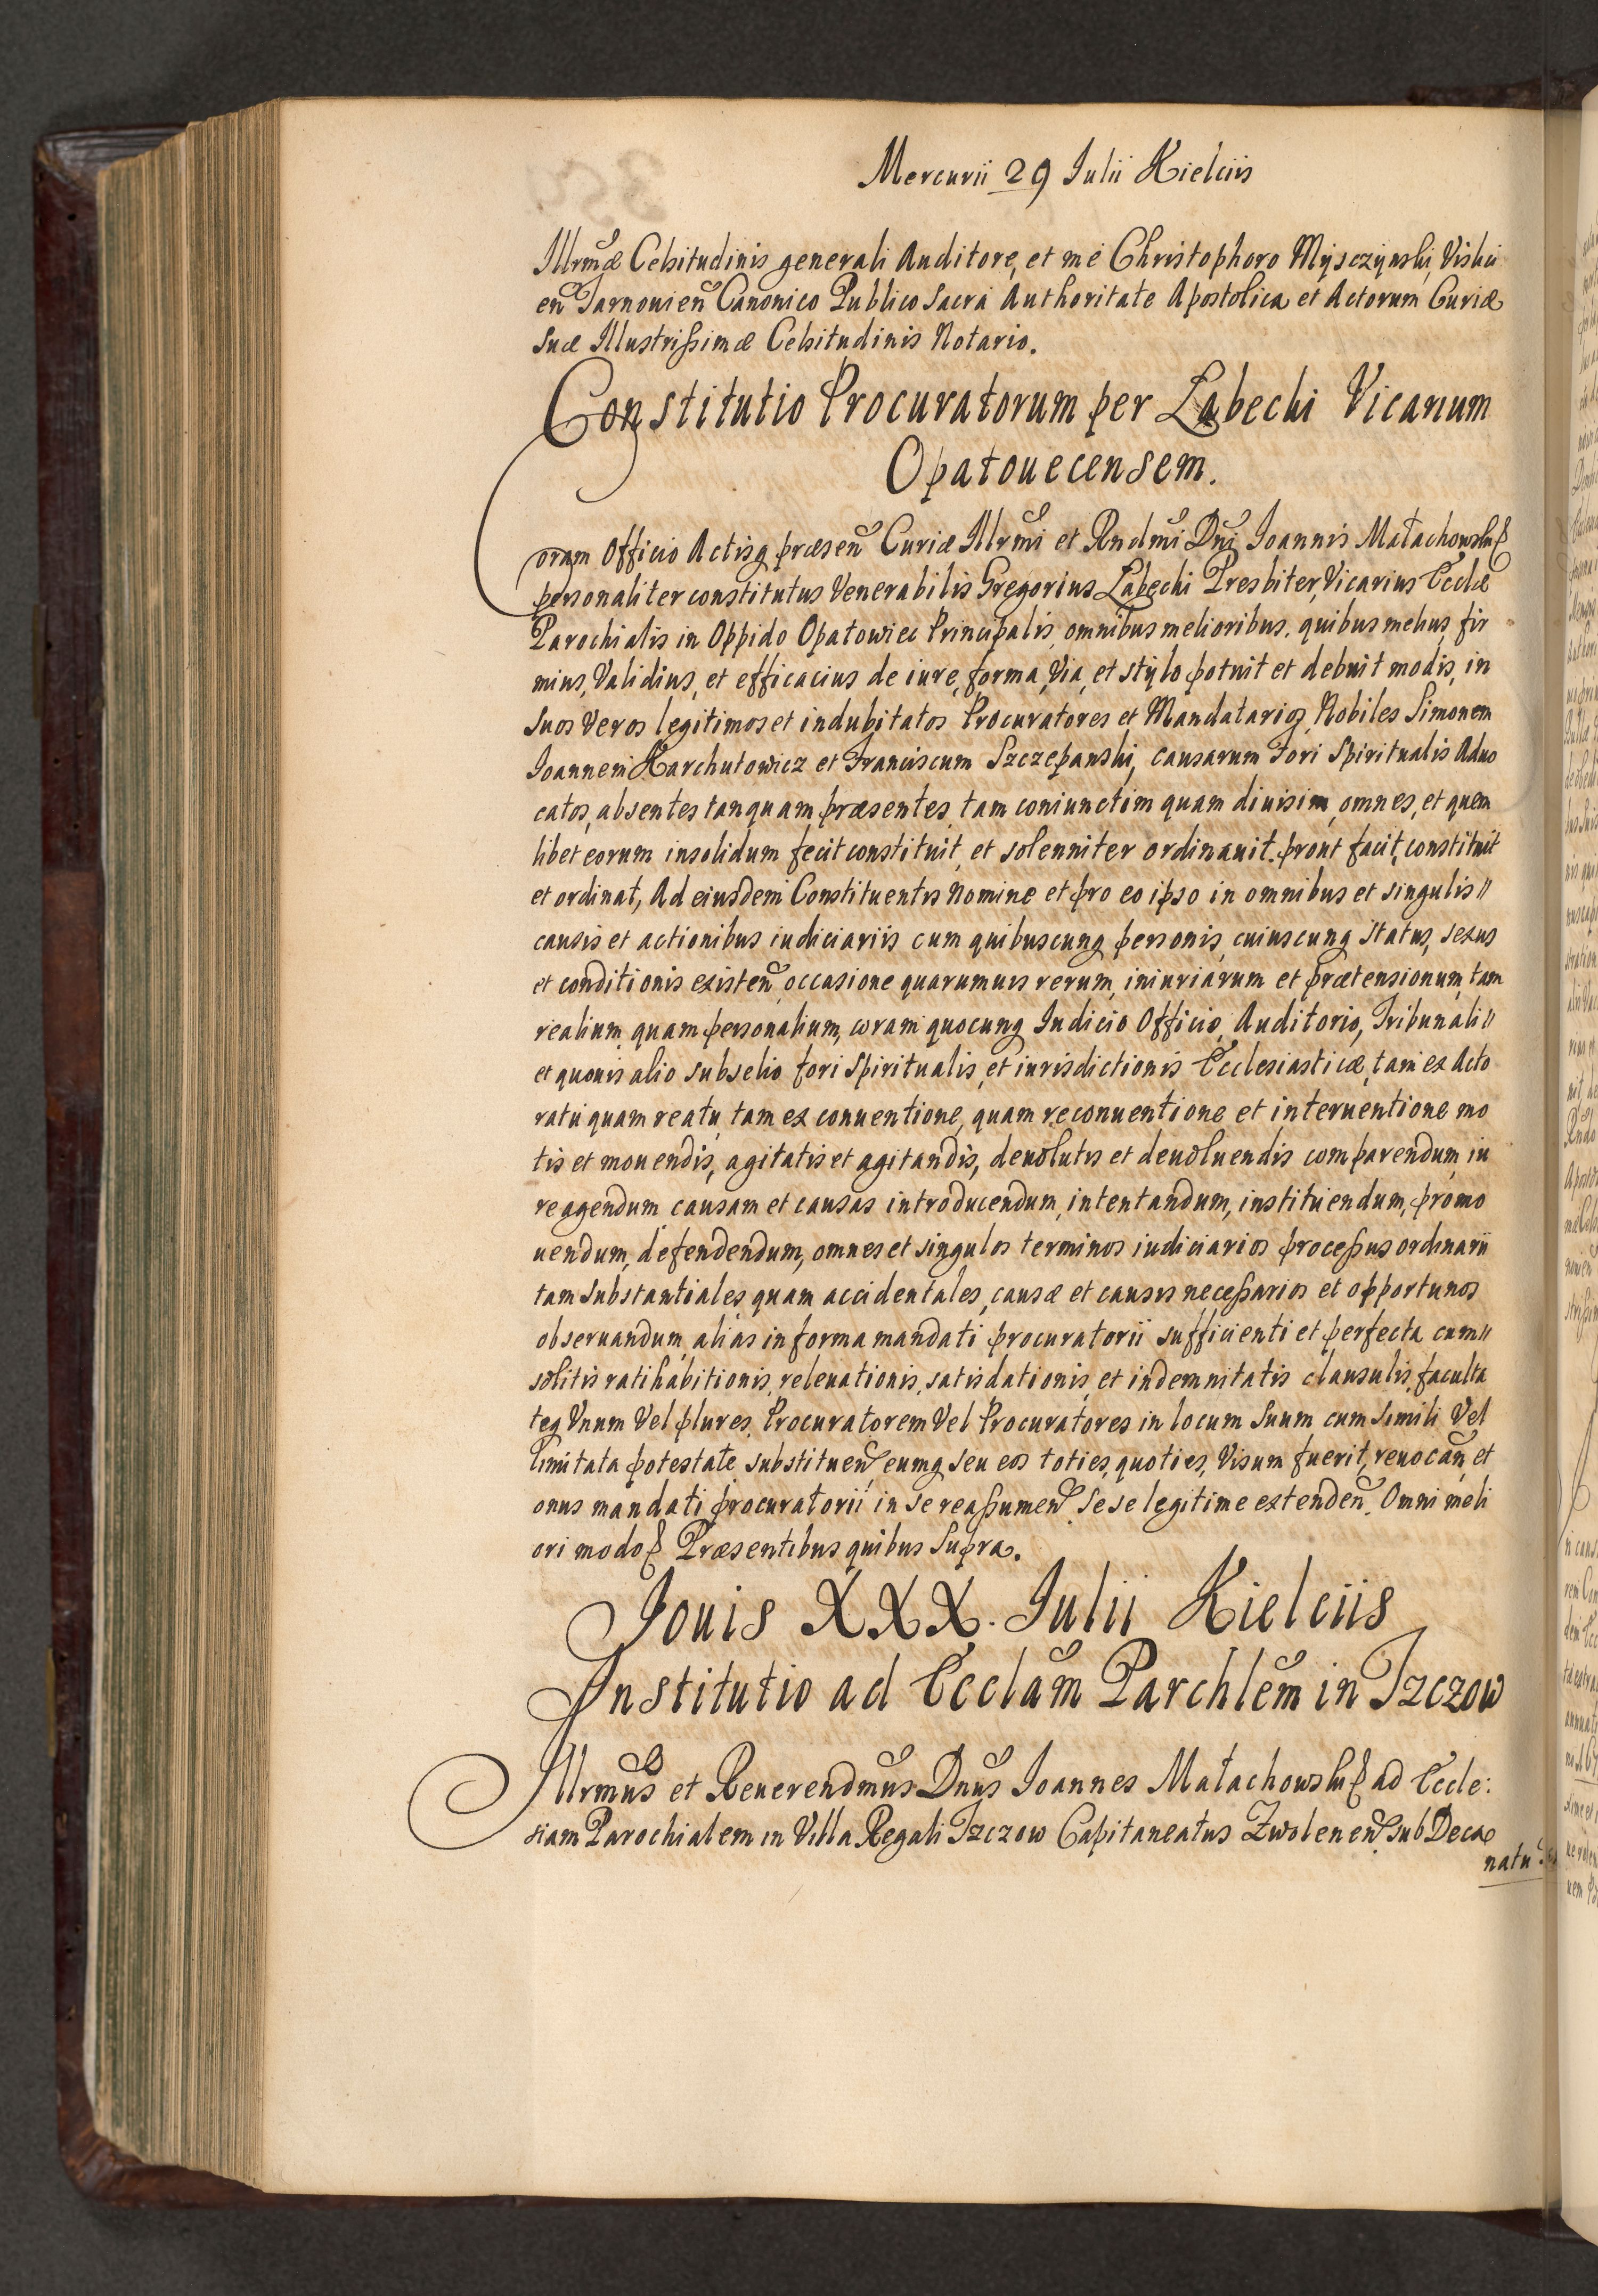 Mercurii 29 Julii Kielciis
Illrmæ Celsitudinis generali Auditore, et me Christophoro Mysczynski Vislici
en Tarnovien Canonico Publico Sacra Authoritate Apostolica et Actorum Curiæ
Suæ Illustrissimæ Celsitudinis Notario.
Constitutio Procuratorum per Labecki Vicarium
Opatouecensem.
Coram Officio Actisq præsen Curiæ Illrmi et Rndmi Dni Joannis Małachowski
personaliter constitutus Venerabilis Gregorius Labecki Presbiter, Vicarius Ecclæ
Parochialis in Oppido Opatowiec Principalis, omnibus melioribus, quibus melius, fir
mius, Validius, et efficacius de iure, forma, Via, et stylo potuit et debuit modis, in
Suos Veros legitimos et indubitatos Procuratores et Mandatarios, Nobiles Simonem
Joannem Karchutowicz et Franciscum Szczepanski, causarum Fori Spiritualis Aduo
catos, absentes tanquam præsentes, tam coniunctim quam diuisim, omnes, et quem
libet eorum insolidum fecit constituit, et solenniter ordinauit. prout facit, constituit
et ordinat, Ad eiusdem Constituentis Nomine et pro eo ipso in omnibus et singulis //
causis et actionibus iudiciariis cum quibuscunq personis, cuiuscunq status, sexus
et conditionis existen, occasione quarumuis rerum, iniuriarum et prætensionum, tam
realium, quam personalium, coram quocunq Judicio Officio, Auditorio, Tribunali //
et quouis alio subselio fori Spiritualis, et iurisdictionis Ecclesiasticæ, tam ex Acto
ratu quam reatu, tam ex conuentione, quam reconuentione et interuentione mo
tis et mouendis, agitatis et agitandis, deuolutis et deuoluendis comparendum, iu
re agendum causam et causas introducendum, intentandum, instituendum, promo
uendum, defendendum, omnes et singulos terminos iudiciarios processus ordinarii
tam substantiales quam accidentales, causæ et causis necessarios et opportunos
obseruandum, alias in forma mandati procuratorii sufficienti et perfecta cum //
solitis ratihabitionis, releuationis, satisdationis, et indemnitatis clausulis, faculta
teq Vnum Vel plures, Procuratorem Vel Procuratores in locum Suum cum Simili Vel
limitata potestate substituen, eumq seu eos toties, quoties, Visum fuerit, reuocan, et
onus mandati procuratorii in se reassumen. Sese legitime extenden. Omni meli
ori modo Præsentibus quibus Supra.
Jouis XXX. Julii Kielciis
Institutio ad Ecclam Parchlem in Tzczow
Illrmus et Reuerendmus Dnus Joannes Małachowski ad Eccle:
siam Parochialem in Villa Regali Tzczow Capitaneatus Zwolenen Sub Deca
natu